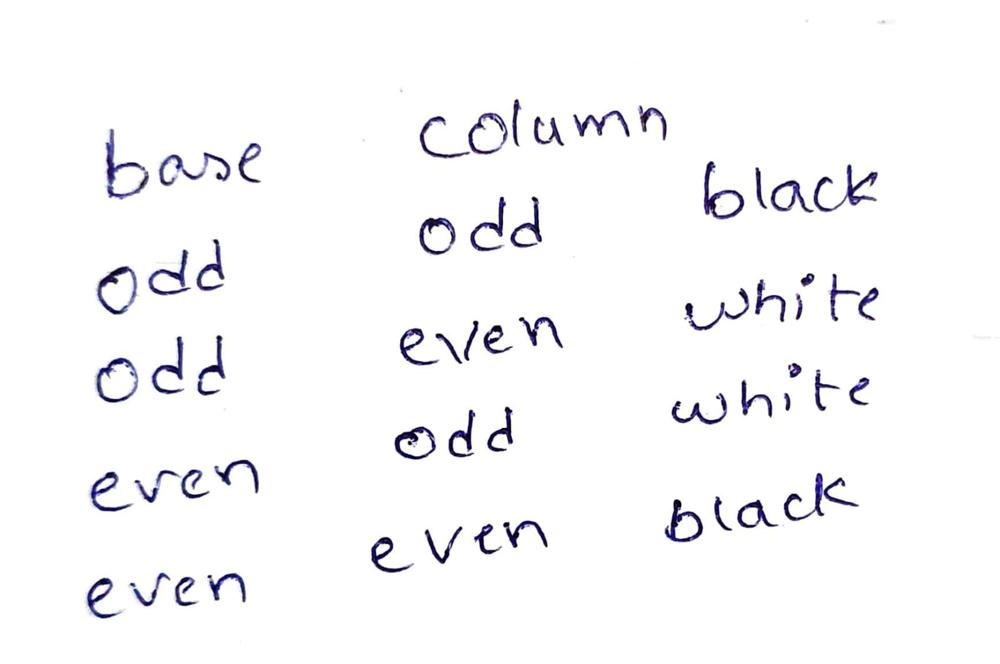 base column
odd odd black
odd even white
even odd white
even even black